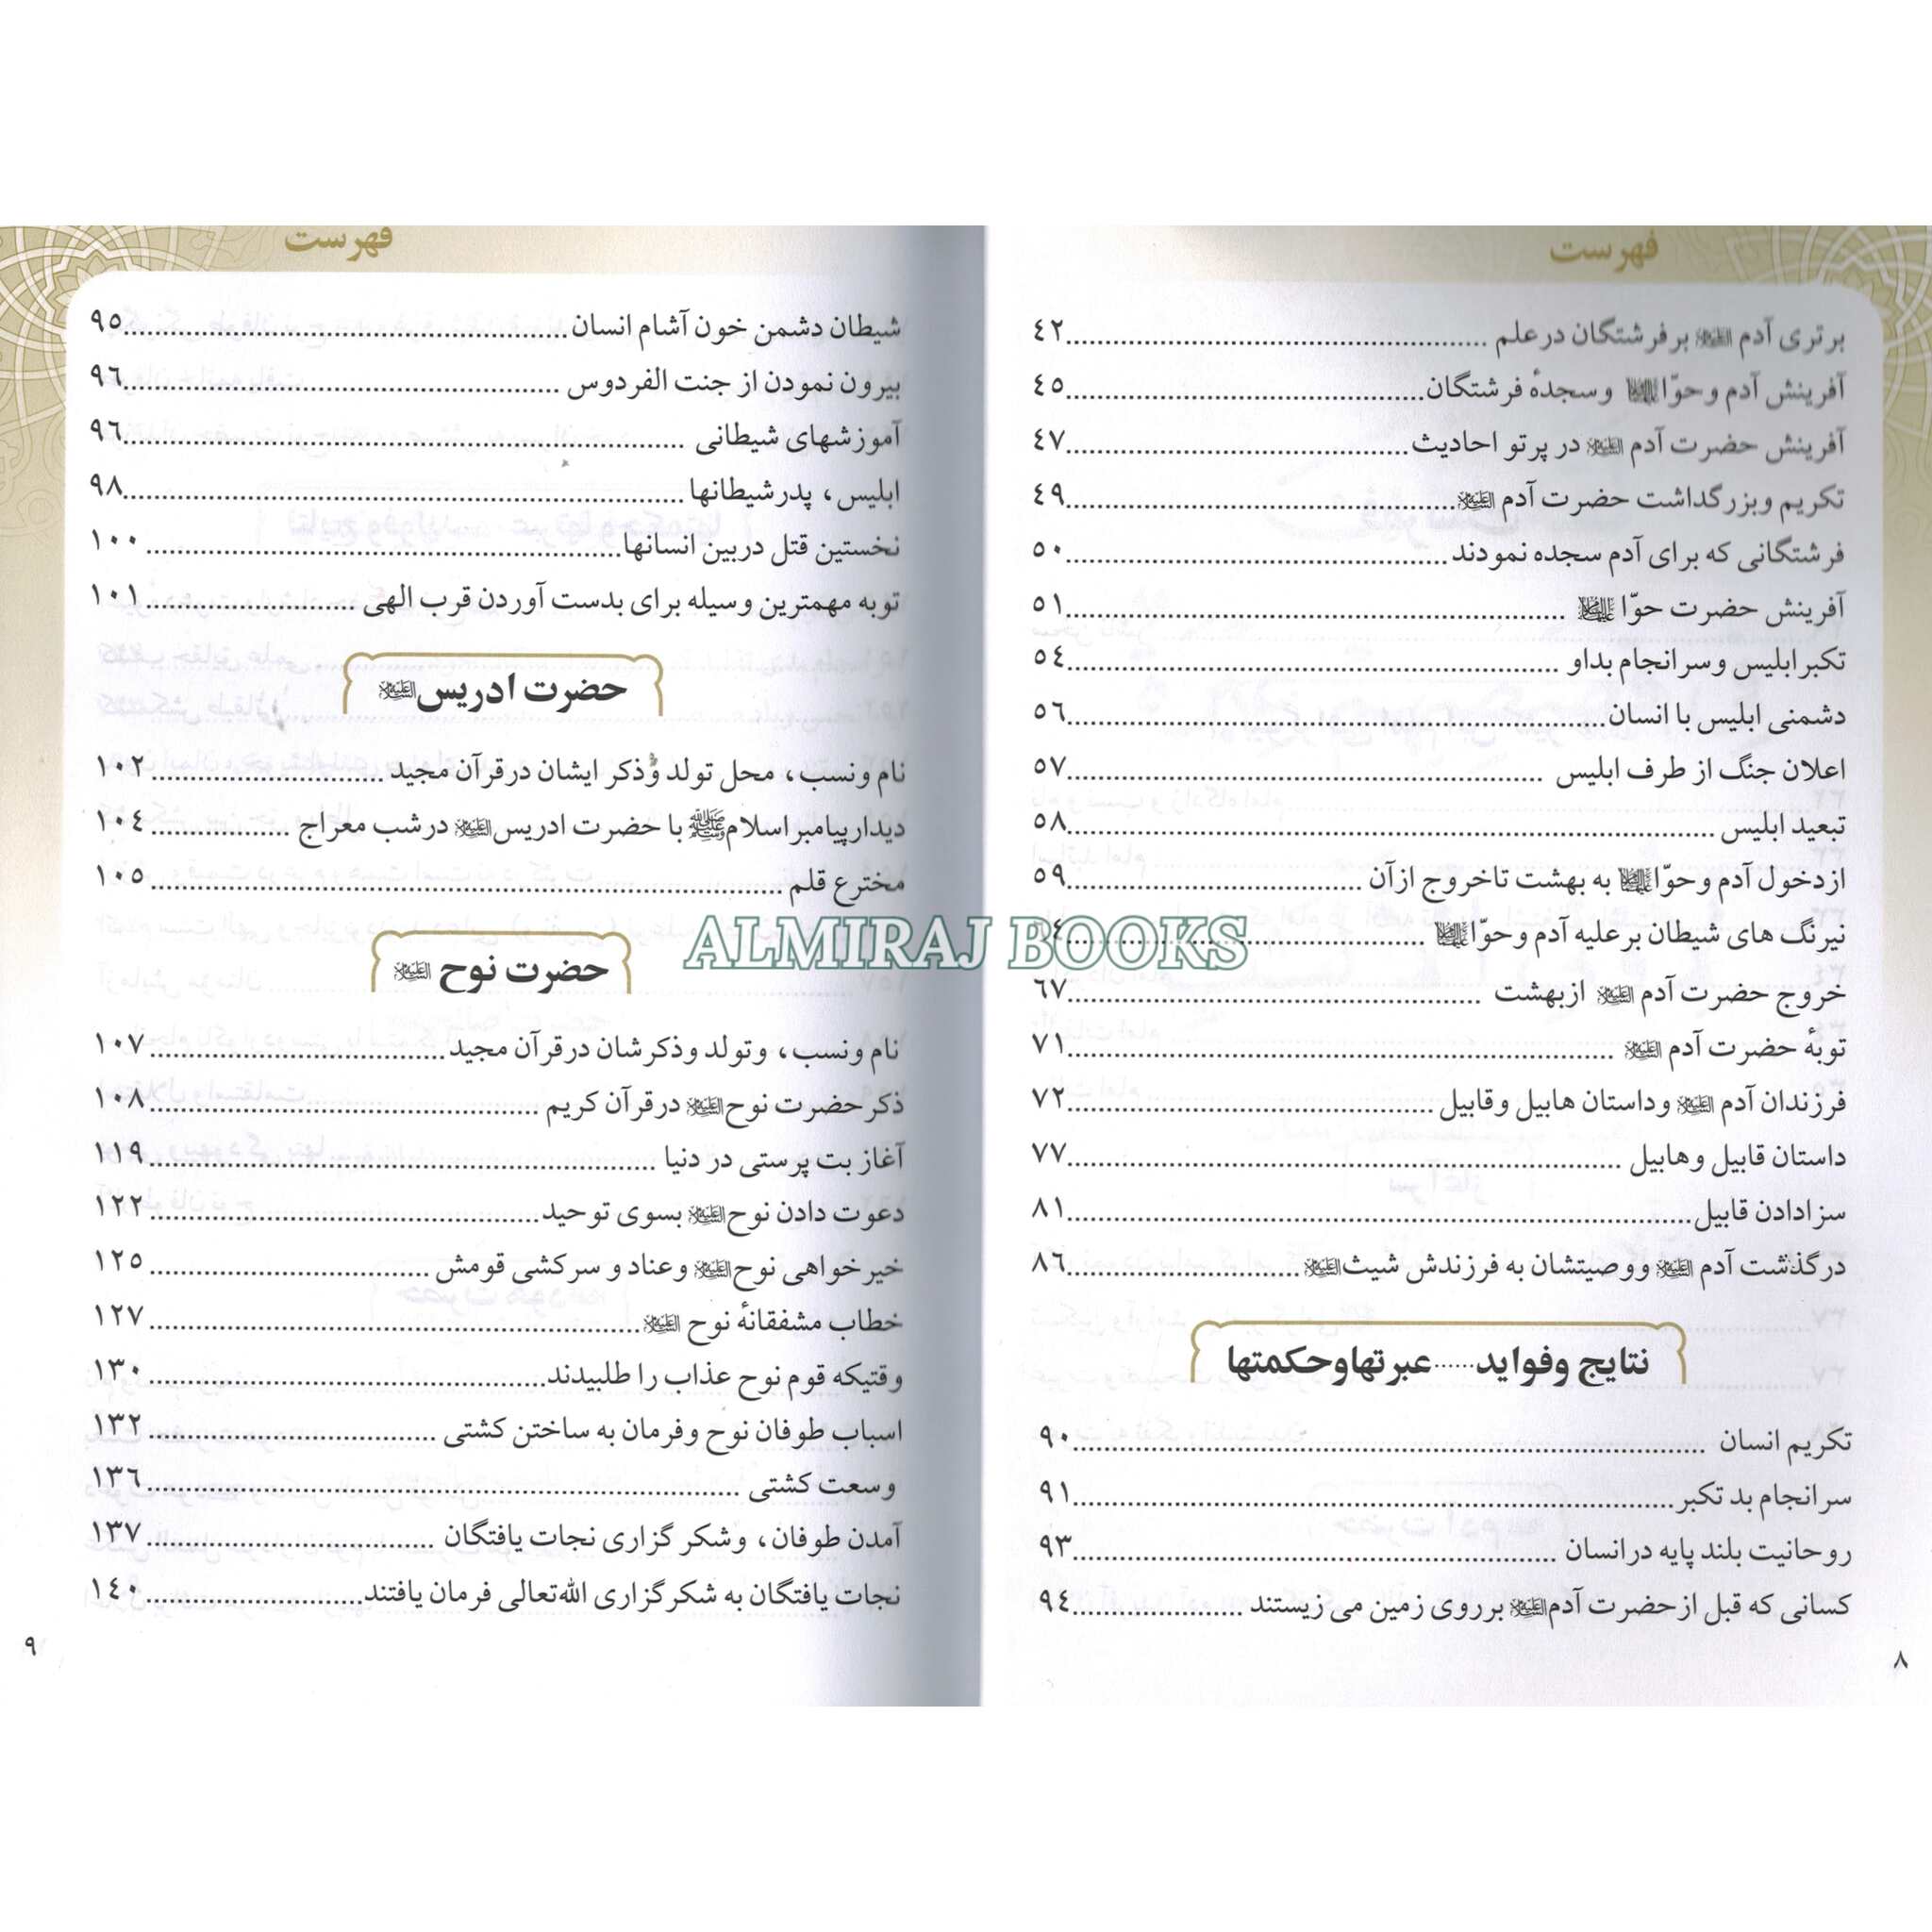 فهرست
برتری آدم علیه السلام بر فرشتگان در علم ........ ٤٢
آفرینش آدم و حوّا علیهما السلام و سجدهٔ فرشتگان ........ ٤٥
آفرینش حضرت آدم علیه السلام در پرتو احادیث ........ ٤٧
تکریم وبزرگداشت حضرت آدم علیه السلام ........ ٤٩
فرشتگانی که برای آدم سجده نمودند ........ ٥٠
آفرینش حضرت حوّا علیها السلام ........ ٥١
تکبر ابلیس و سر انجام بد او ........ ٥٤
دشمنی ابلیس با انسان ........ ٥٦
اعلان جنگ از طرف ابلیس ........ ٥٧
تبعید ابلیس ........ ٥٨
از دخول آدم و حوّا علیهما السلام به بهشت تا خروج از آن ........ ٥٩
نیرنگ های شیطان بر علیه آدم و حوّا علیهما السلام ........ ٤
خروج حضرت آدم علیه السلام از بهشت ........ ٦٧
توبهٔ حضرت آدم علیه السلام ........ ٧١
فرزندان آدم علیه السلام و داستان هابیل و قابیل ........ ٧٢
داستان قابیل و هابیل ........ ٧٧
سزا دادن قابیل ........ ٨١
درگذشت آدم علیه السلام و وصیتشان به فرزندش شیث علیه السلام ........ ٨٦
نتایج وفواید......عبرتهاوحکمتها
تکریم انسان ........ ٩٠
سرانجام بد تکبر ........ ٩١
روحانیت بلند پایه در انسان ........ ٩٣
کسانی که قبل از حضرت آدم علیه السلام بر روی زمین می زیستند ........ ٩٤
٨
فهرست
شیطان دشمن خون آشام انسان ........ ٩٥
بیرون نمودن از جنت الفردوس ........ ٩٦
آموزشهای شیطانی ........ ٩٦
ابلیس، پدر شیطانها ........ ٩٨
نخستین قتل دربین انسانها ........ ١٠٠
توبه مهمترین وسیله برای بدست آوردن قرب الهی ........ ١٠١
حضرت ادریس علیه السلام
نام ونسب، محل تولد و ذکر ایشان در قرآن مجید ........ ١٠٢
دیدار پیامبر اسلام ﷺ با حضرت ادریس علیه السلام در شب معراج ........ ١٠٤
مخترع قلم ........ ١٠٥
حضرت نوح علیه السلام
نام ونسب، وتولد وذکرشان در قرآن مجید ........ ١٠٧
ذکر حضرت نوح علیه السلام در قرآن کریم ........ ١٠٨
آغاز بت پرستی در دنیا ........ ١١٩
دعوت دادن نوح علیه السلام بسوی توحید ........ ١٢٢
خیرخواهی نوح علیه السلام وعناد و سرکشی قومش ........ ١٢٥
خطاب مشفقانهٔ نوح علیه السلام ........ ١٢٧
وقتیکه قوم نوح عذاب را طلبیدند ........ ١٣٠
اسباب طوفان نوح وفرمان به ساختن کشتی ........ ١٣٢
وسعت کشتی ........ ١٣٦
آمدن طوفان، وشکر گزاری نجات یافتگان ........ ١٣٧
نجات یافتگان به شکرگزاری الله تعالی فرمان یافتند ........ ١٤٠
٩
ALMIRAJ BOOKS